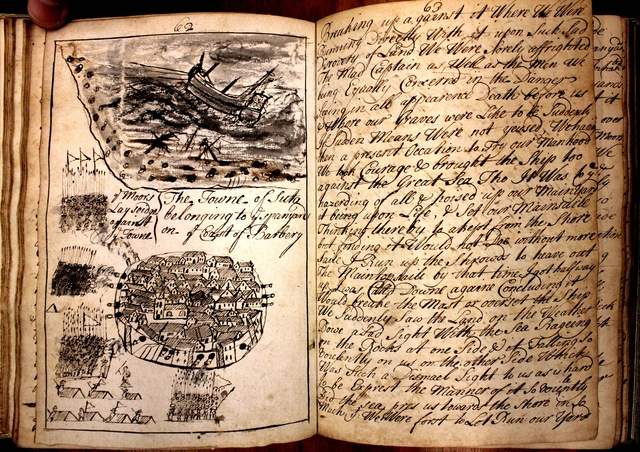 62
ye Moors
Lay seidge
against
ye Towne
The Towne of Suta
belonging to ye spaniards
on ye East of Barbery
63
Breaking up a gainst it Where We Were
Running Directly With it upon Such Sad
of Land We Were Sorely affrighted
Mad Captain as Well as the Men We
being Equally Concerned in the Danger
Seing in all appearence Death before us
Where our Graves Were Like to be Suddenly
if Sudden Means Were not
then a present Occation to Try our Manhood
We took Courage & brought the Ship too
against the Great Sea Tho It Was
hazording of all & hoised up our Mainyard
it being upon Life, & Set our Mainsaile
Thinking thereby to a kept from the Shore
but finding it Would not Doe without more
Saile I Run up the Shrowds to heave out
The Maintopsaile by that time I got halfway
I Was Downe againe Concluding it
Would breake the Mast or overset the Ship
We Suddenly Saw the Land on the Weather
Bowe a Sad Sight With the Sea Rageing
on the Rocks at one Side & of Falling So
Doubently as on the other Side Which
Was Such a Dismael Sight to us as is hard
to be Exprest the Manner of it So Doubently
Did the Sea press us towards the Shore in So
Much yt We Were forst to Let Run our